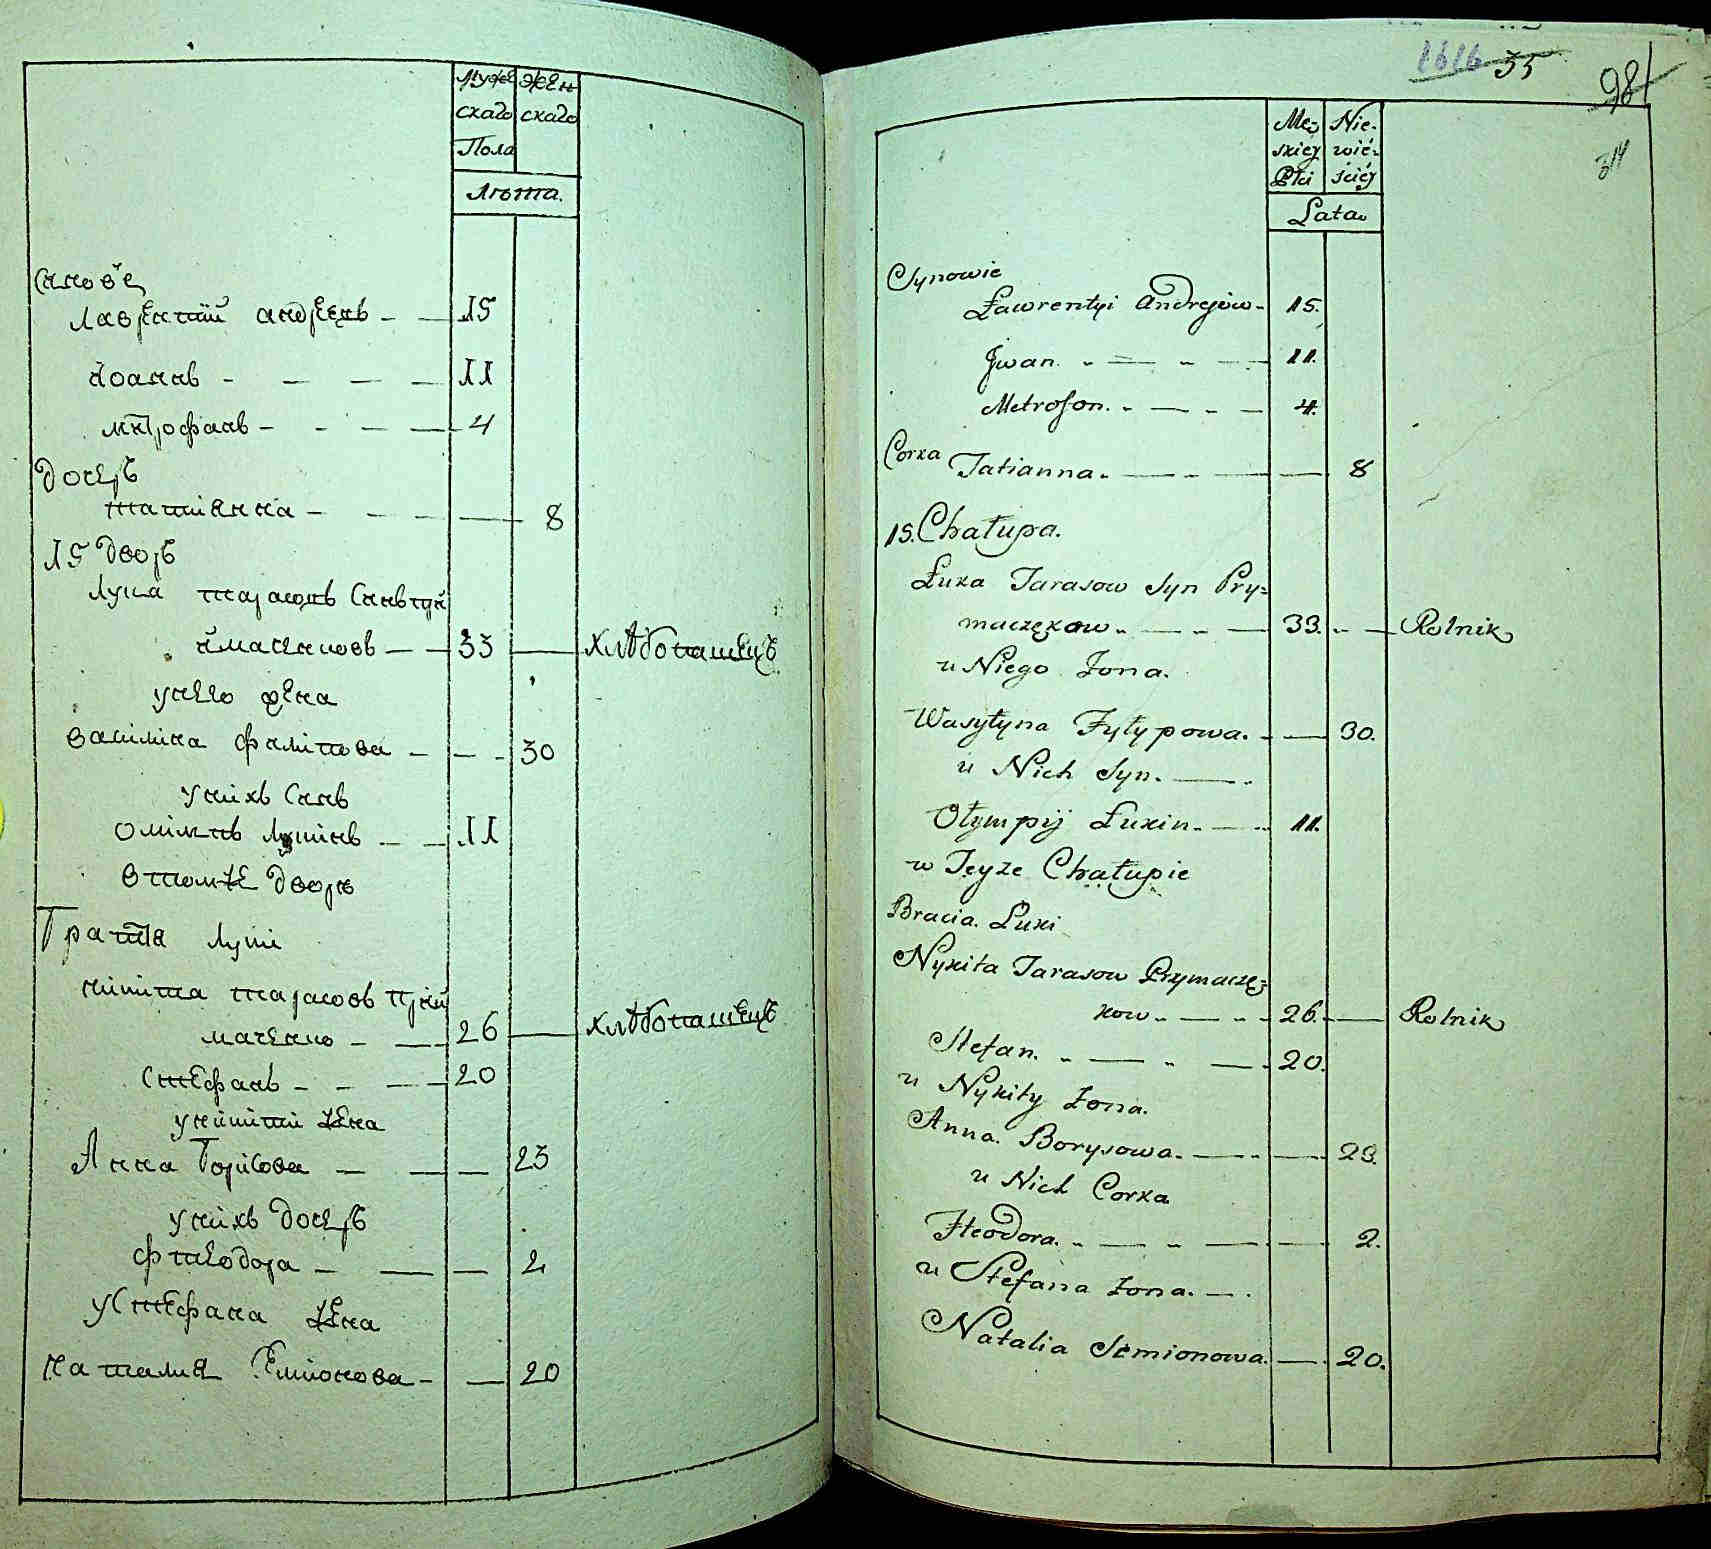 Муже Жен
скаго скаго
Пола
Лѣта.
Синовѣ
Лаврентий Андреевъ 15
Иоаннъ 11
Митрофанъ 4
Дочеръ
Татианна 8
15 Дворъ
Лука Тарасовъ Синъ При
маченковъ 33 Хлѣбопашецъ
у него жена
Василина Филипова 30
у нихъ Синъ
Олимпъ Лукинъ 11
в томже дворѣ
Братия Луки
Никита Тарасовъ При
маченко 26 Хлѣбопашецъ
Стефанъ 20
у Никити жена
Анна Борисова 23
у нихъ дочеръ
Фтеодора 2
у Стефана жена
Наталия Семионова 20
1616 35 98
314
Męz Nie-
skiey wié-
Płci ściey
Lata
Synowie
Ławrentyi Andrejów 15.
Jwan. 11.
Metrofon. 4.
Corka Tatianna. 8
15. Chałupa.
Łuka Tarasow Syn Pry=
maczękow 33. Rolnik
u Niego Żona.
Wasyłyna Fyłypowa. 30.
u Nich Syn.
Ołympij Łukin. 11.
w Teyże Chałupie
Bracia. Łuki
Nykita Tarasow Prymaczę=
kow 26. Rolnik
Stefan. 20.
u Nykity Żona.
Anna. Borysowa. 23.
u Nich Corka
Fteodora. 2.
u Stefana Żona.
Natalia Semionowa. 20.